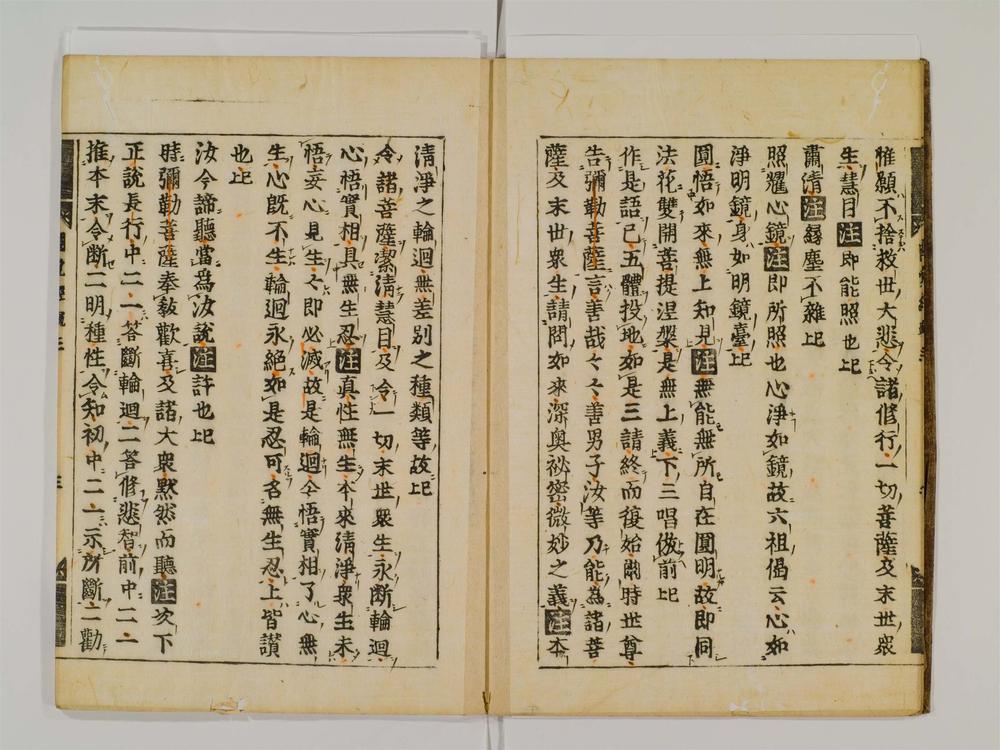 惟願不捨救世大悲令諸修行一切菩薩及末世衆
生慧目注即能照也𰃮
肅清注縁塵不雜𰃮
照耀心鏡注即所照也心淨如鏡故六祖偈云心如
淨明鏡身如明鏡臺𰃮
圓悟如來無上知見注無能無所自在圓明故即同
法花雙開菩提涅槃是無上義下三唱倣前𰃮
作是語已五體投地如是三請終而復始爾時世尊
告彌勒菩薩言善哉々々善男子汝等乃能為諸菩
薩及末世衆生請問如來深奥祕密微妙之義注本
清淨之輪迴無差別之種類等故𰃮
令諸菩薩潔清慧目及令一切末世衆生永断輪迴
心悟實相具無生忍注真性無生本來清淨衆生未
悟妄心見生々即必滅故是輪迴今悟實相了心無
生心既不生輪迴永絕如是忍可名無生忍上皆讃
也𰃮
汝今諦聽當為汝說注許也𰃮
時彌勒菩薩奉教歡喜及諸大衆默然而聽注次下
正說長行中二一答斷輪迴二答修悲智前中二一
推本末令断二明種性令知初中二一示所斷二勸